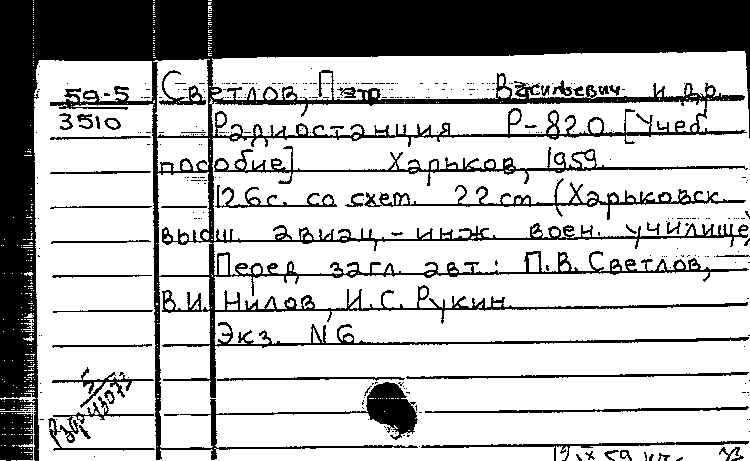 59-5 Светлов, Петр Васильевич и др.
3510 Радиостанция Р-820. [Учеб.
пособие]. Харьков, 1959.
126 с. со схем. 22 см. (Харьковск.
высш. авиац.-инж. воен. училище)
Перед загл. авт.: П.В. Светлов,
В.И. Нилов, И.С. Рукин.
Экз. N 6.